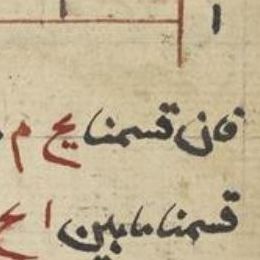 فان قسمنا يح م
قسمنا ما بين ا ح